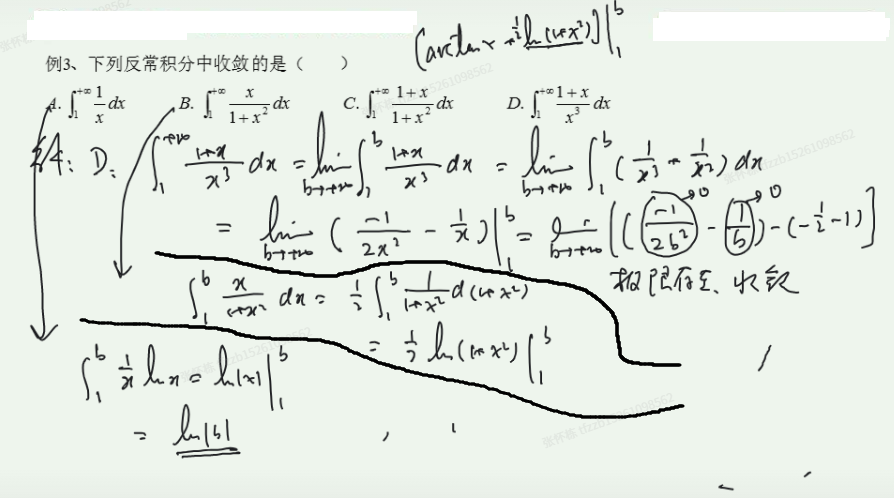 [arctan x + \frac{1}{2}ln(1+x²)]|_1^b
例3、下列反常积分中收敛的是（ ）
A. \int_1^{+∞} \frac{1}{x} dx B. \int_1^{+∞} \frac{x}{1+x²} dx C. \int_1^{+∞} \frac{1+x}{1+x²} dx D. \int_1^{+∞} \frac{1+x}{x³} dx
解: D: \int_1^{+∞} \frac{1+x}{x³} dx = \lim_{b→+∞} \int_1^b \frac{1+x}{x³} dx = \lim_{b→+∞} \int_1^b (\frac{1}{x³} + \frac{1}{x²}) dx
= \lim_{b→+∞} (\frac{-1}{2x²} - \frac{1}{x})|_1^b = \lim_{b→+∞} [((\frac{-1}{2b²}→0 - \frac{1}{b}→0) - (-\frac{1}{2} - 1)]
极限存在、收敛
\int_1^b \frac{x}{1+x²} dx = \frac{1}{2} \int_1^b \frac{1}{1+x²} d(1+x²)
= \frac{1}{2} ln(1+x²)|_1^b
\int_1^b \frac{1}{x} ln x = ln|x||_1^b
= ln|b|